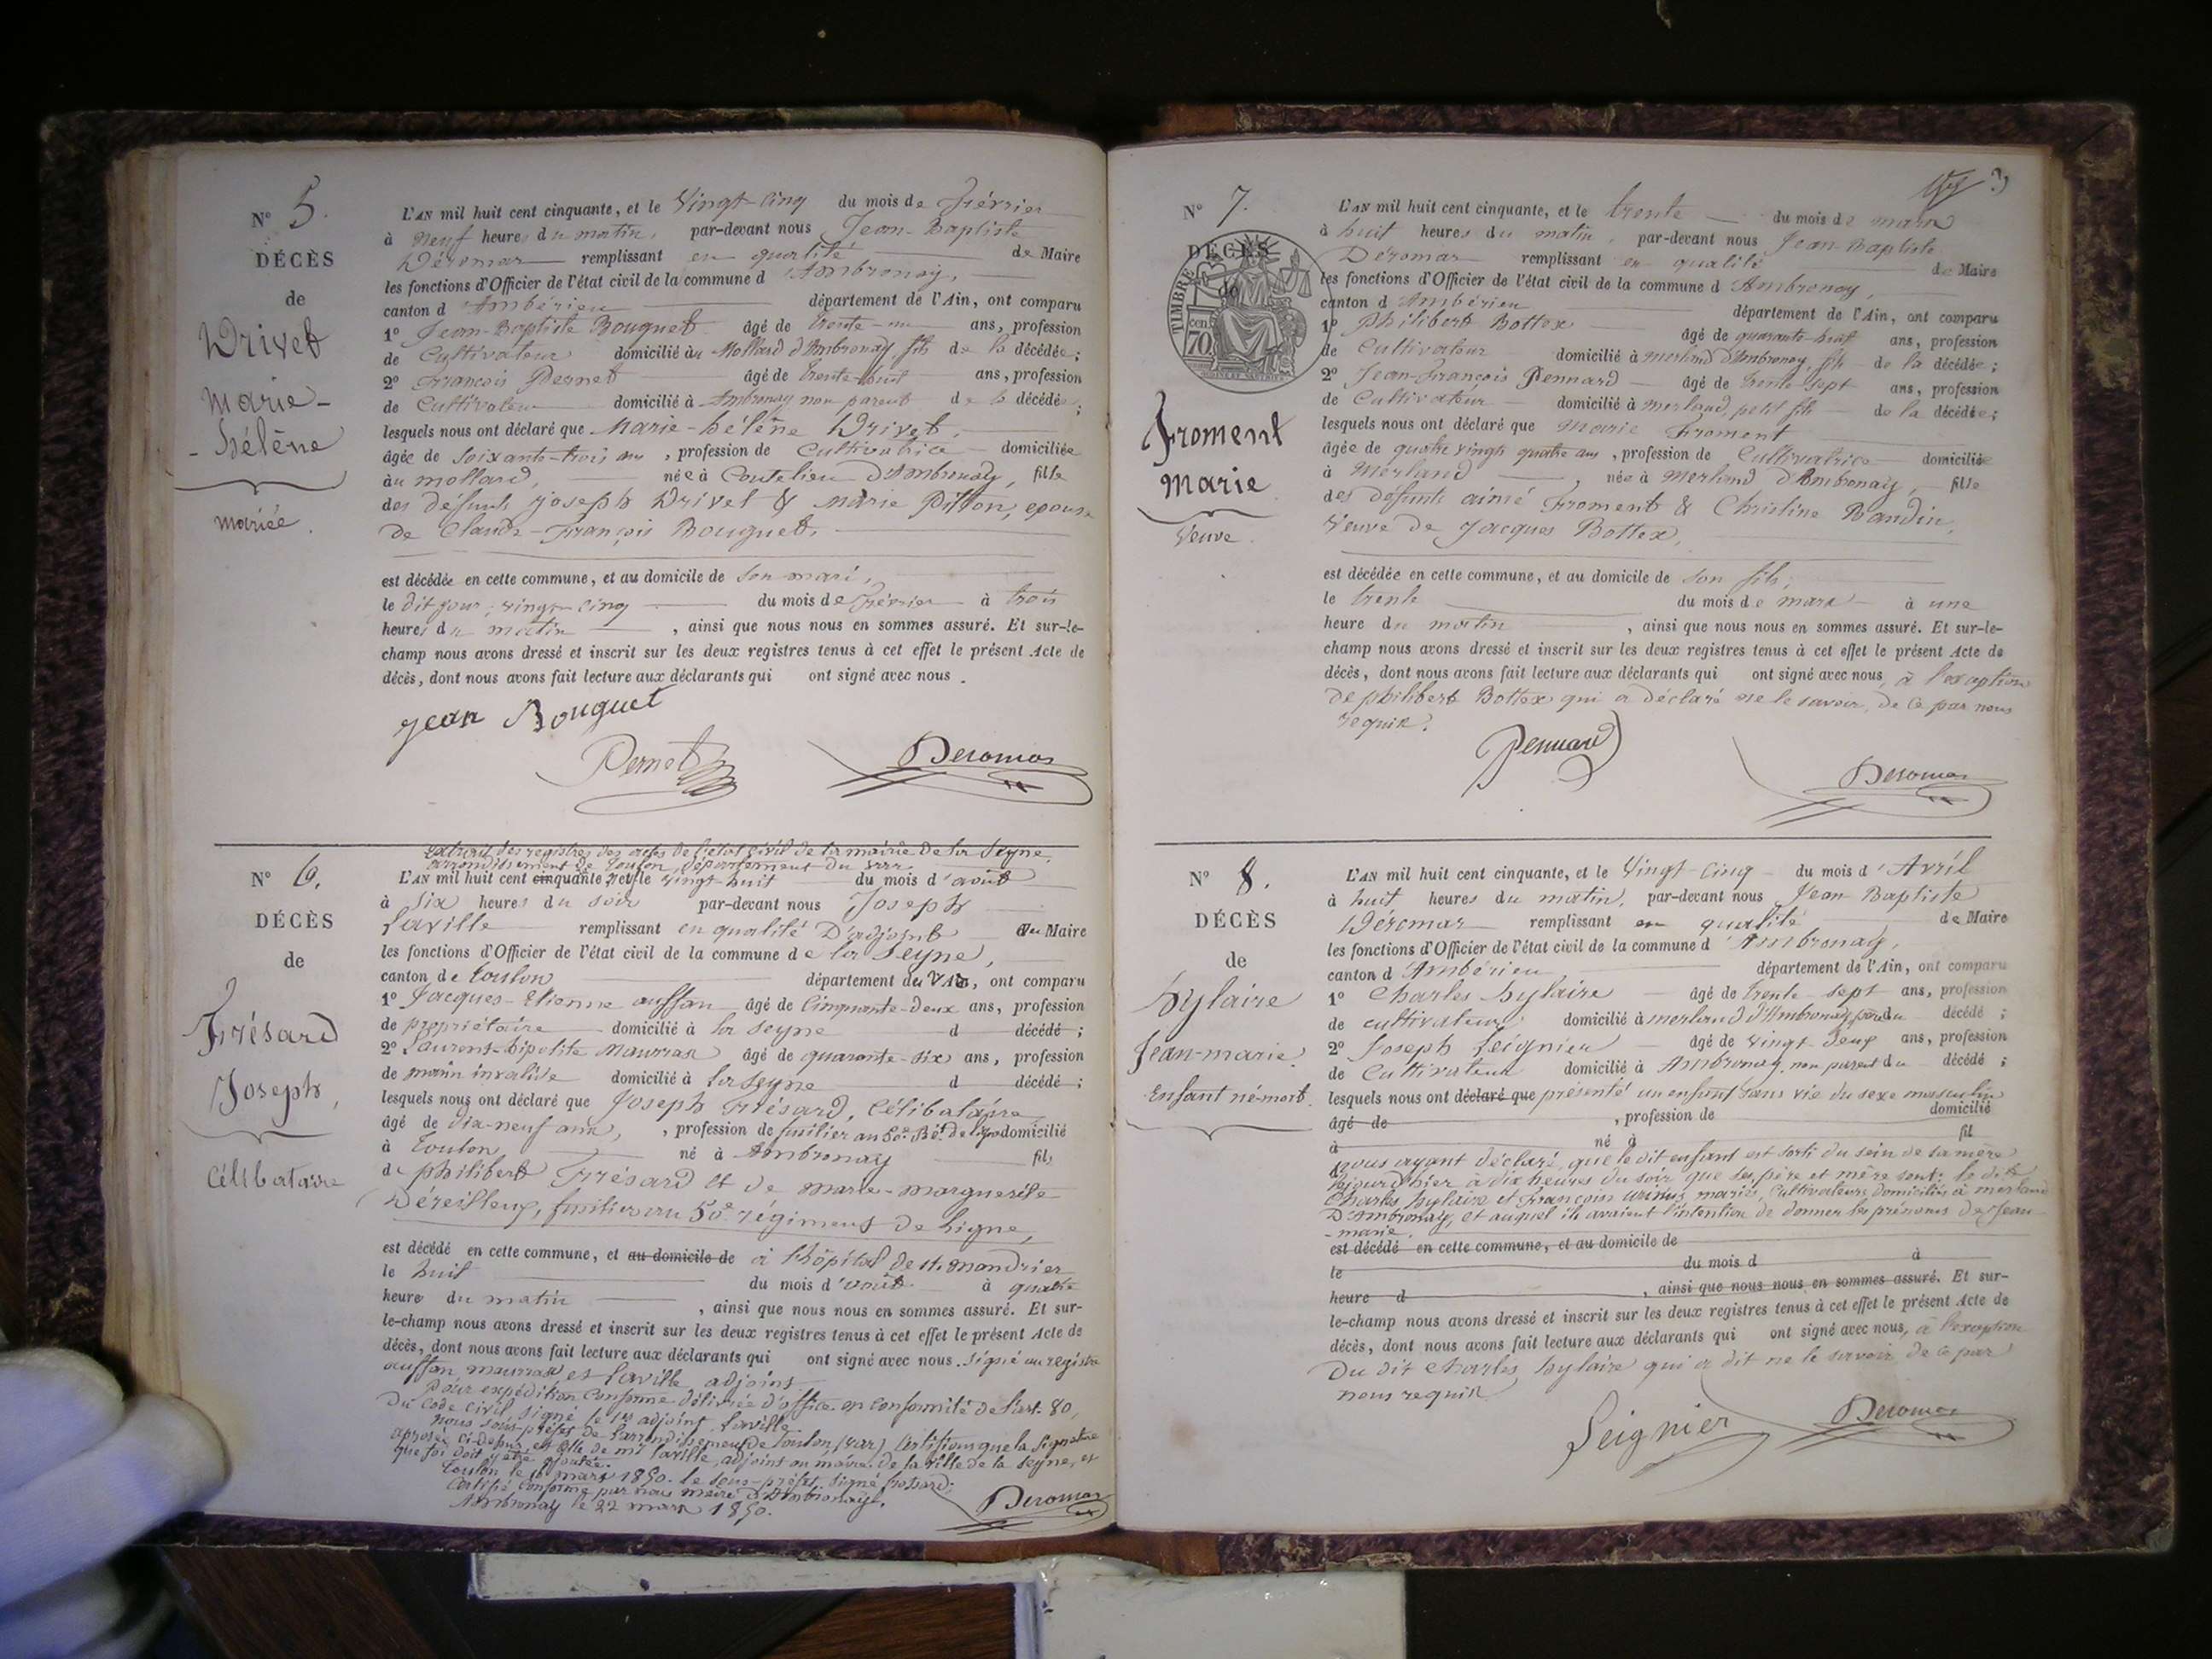 N° 5.
DÉCÈS
de
Drivet
Marie-
-hélène
mariée.
L'AN mil huit cent cinquante, et le Vingt-Cinq du mois de Février
à neuf heures du matin, par-devant nous Jean-Baptiste
Déromas remplissant en qualité de Maire
les fonctions d'Officier de l'état civil de la commune d'Ambronay,
canton d'Ambérieu département de l'Ain, ont comparu
1° Jean-Baptiste Bouguet âgé de trente-un ans, profession
de Cultivateur domicilié au Mollard d'Ambronay, fils de la décédée;
2° François Pernet âgé de trente-huit ans, profession
de Cultivateur domicilié à Ambronay non parent de la décédée;
lesquels nous ont déclaré que Marie-hélène Drivet,
âgée de soixante-trois ans, profession de Cultivatrice domiciliée
au mollard, née à Coutelieu d'Ambronay, fille
des défunts Joseph Drivet & Marie Pitton, epouse
de Claude-François Bouguet.
est décédée en cette commune, et au domicile de son mari,
le dit jour, vingt-cinq du mois de Février à trois
heures du matin, ainsi que nous nous en sommes assuré. Et sur-le-
champ nous avons dressé et inscrit sur les deux registres tenus à cet effet le présent Acte de
décès, dont nous avons fait lecture aux déclarants qui ont signé avec nous.
Jean Bouguet
Pernet Deromas
extrait des registres des actes de l'état civil de la mairie de la Seyne,
arrondissement de Toulon, département du Var.
N° 6.
DÉCÈS
de
Frésard
Joseph,
Célibataire
L'AN mil huit cent cinquante neuf le vingt-huit du mois d'août
à six heures du soir par-devant nous Joseph
Laville remplissant en qualité D'adjoint du Maire
les fonctions d'Officier de l'état civil de la commune de la Seyne,
canton de toulon département du VAR, ont comparu
1° Jacques-Etienne auffan âgé de Cinquante-deux ans, profession
de propriétaire domicilié à la seyne d décédé;
2° Laurent-hipolite Maurras âgé de quarante-six ans, profession
de marin invalide domicilié à la Seyne d décédé;
lesquels nous ont déclaré que Joseph Frésard, Célibataire
âgé de dix-neuf ans, profession de fusilier au 50e Rt. de ligne domicilié
à toulon né à Ambronay fils
de philibert Frésard et de marie-marguerite
Déreilleux, fusilier au 50e régiment de ligne,
est décédé en cette commune, et au domicile de à l'hôpital de St. Mandrier
le huit du mois d'août à quatre
heure du matin, ainsi que nous nous en sommes assuré. Et sur-
le-champ nous avons dressé et inscrit sur les deux registres tenus à cet effet le présent Acte de
décès, dont nous avons fait lecture aux déclarants qui ont signé avec nous. Signé au registre
auffan, maurras et Laville adjoint
Pour expédition Conforme délivrée d'office en conformité de l'art. 80,
du code civil. Signé le 1er adjoint Laville
nous sous-préfet de l'arrondissement de Toulon (var) Certifions que la signature
apposée ci-dessus est celle de mr Laville, adjoint au maire de la ville de la Seyne, et
que foi doit y être ajoutée.
Toulon le 16 mars 1850. le sous-préfet,
Certifié conforme par nous maire d'Ambronay.
Ambronay le 22 mars 1850.
Deromas
3
N° 7.
DÉCÈS
de
TIMBRE
cen. 70
Froment
Marie
Veuve.
L'AN mil huit cent cinquante, et le trente du mois de mars
à huit heures du matin, par-devant nous Jean-Baptiste
Déromas remplissant en qualité de Maire
les fonctions d'Officier de l'état civil de la commune d'Ambronay,
canton d'Ambérieu département de l'Ain, ont comparu
1° Philibert Bottex âgé de quarante-huit ans, profession
de Cultivateur domicilié à merland d'Ambronay, fils de la décédée;
2° Jean-François Pennard âgé de trente-sept ans, profession
de Cultivateur domicilié à merland, petit fils de la décédée;
lesquels nous ont déclaré que Marie Froment
âgée de quatre vingts quatre ans, profession de Cultivatrice domiciliée
à Merland née à Merland d'Ambronay, fille
des défunts aimé Froment & Christine Baudin,
Veuve de Jacques Bottex,
est décédée en cette commune, et au domicile de son fils,
le trente du mois de mars à une
heure du matin, ainsi que nous nous en sommes assuré. Et sur-le-
champ nous avons dressé et inscrit sur les deux registres tenus à cet effet le présent Acte de
décès, dont nous avons fait lecture aux déclarants qui ont signé avec nous, à l'exception
de philibert Bottex qui a déclaré ne le savoir, de ce par nous
requis.
Pennard Deromas
N° 8.
DÉCÈS
de
hylaire
Jean-marie.
Enfant né-mort.
L'AN mil huit cent cinquante, et le Vingt-Cinq du mois d'Avril
à huit heures du matin, par-devant nous Jean Baptiste
Déromas remplissant en qualité de Maire
les fonctions d'Officier de l'état civil de la commune d'Ambronay,
canton d'Ambérieu département de l'Ain, ont comparu
1° Charles hylaire âgé de trente-sept ans, profession
de cultivateur domicilié à merland d'Ambronay, père du décédé;
2° Joseph Leignier âgé de vingt-deux ans, profession
de Cultivateur domicilié à Ambronay, non parent du décédé;
lesquels nous ont déclaré que présenté un enfant sans vie du sexe masculin
âgé de, profession de domicilié
à né à fil
d nous ayant déclaré, que le dit enfant est sorti du sein de sa mère
Charles hylaire et mariés, Cultivateurs domiciliés à merland
D'Ambronay, et auquel ils avaient l'intention de donner les prénoms de Jean
-marie.
est décédé en cette commune, et au domicile de
le du mois d à
heure d, ainsi que nous nous en sommes assuré. Et sur-
le-champ nous avons dressé et inscrit sur les deux registres tenus à cet effet le présent Acte de
décès, dont nous avons fait lecture aux déclarants qui ont signé avec nous, à l'exception
Du dit Charles hylaire qui a dit ne le savoir de ce par
nous requis
Leignier Deromas